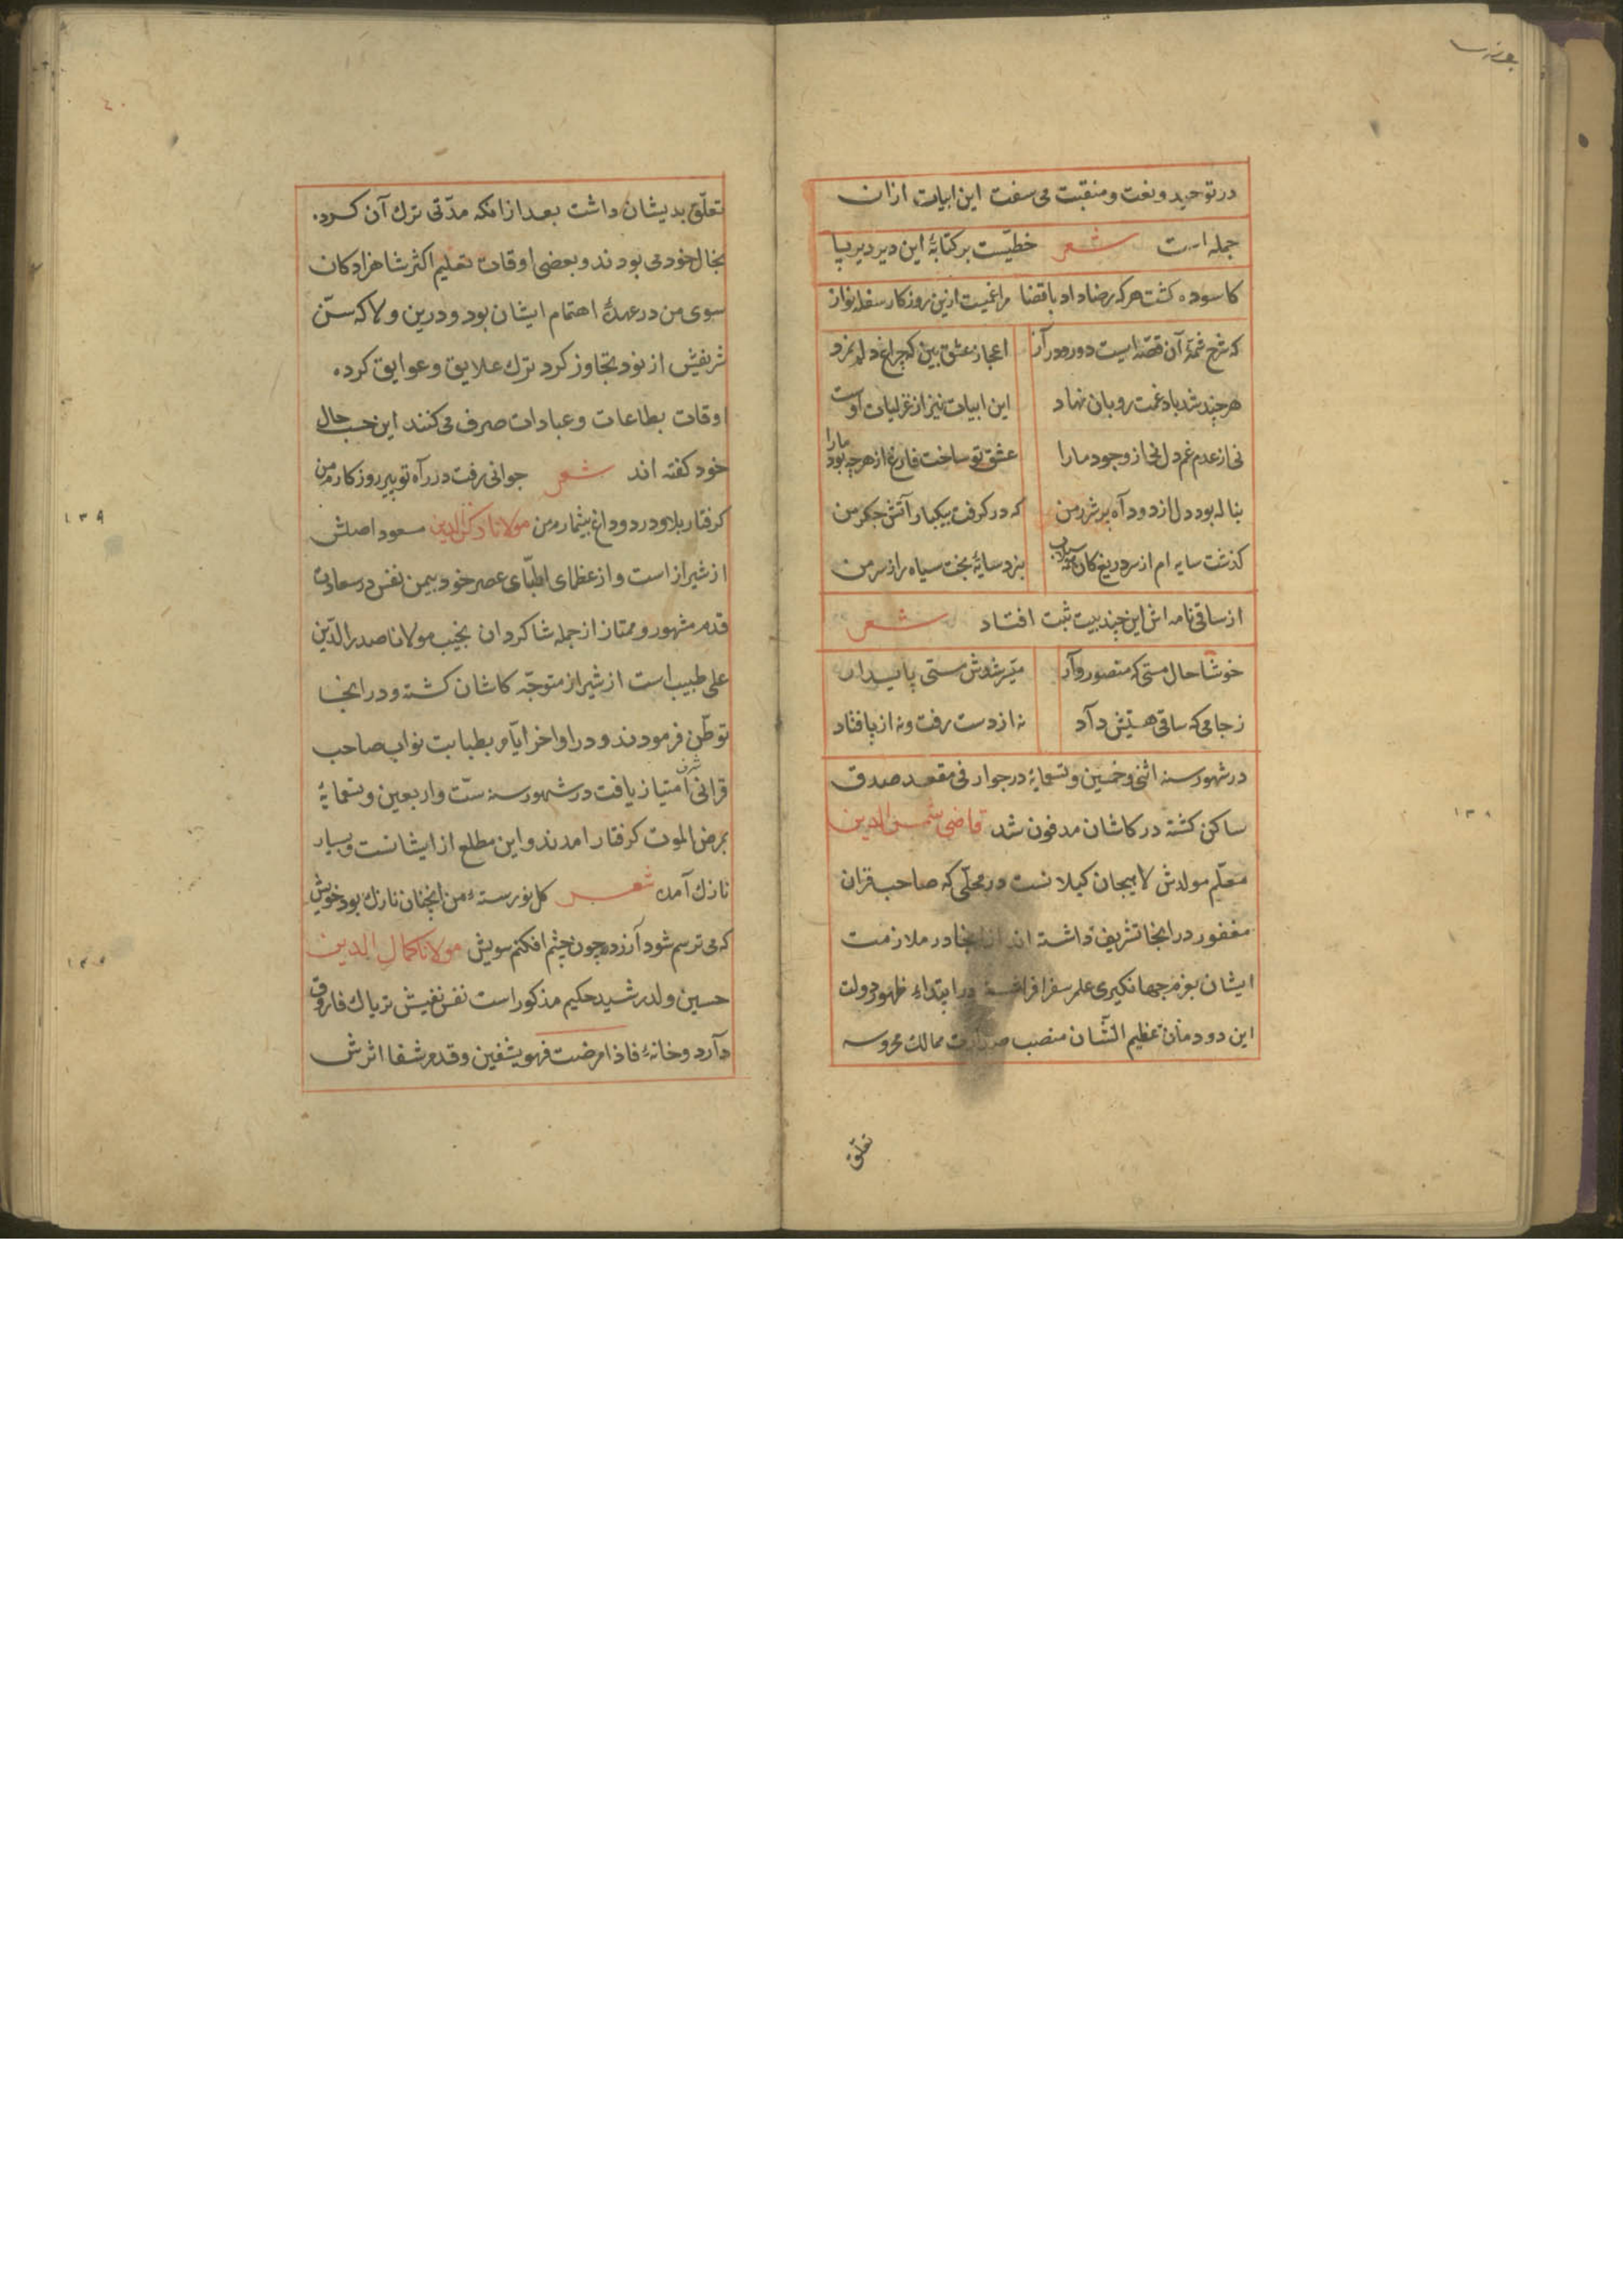 در توحید و نعت و منقبت می سفت این ابیات ازان
جمله است شعر خطیست بر کتابهٔ این دیر دیرپا
کاسوده گشت هرکه رضا داد باقضا مرا غمیست ازین روزکار سفله نواز
که شرح شمهٔ آن قصه ایست دور و دراز اعجاز عشق بین که چراغ دلم نمرد
هرچند شد باد غمت رو بان نهاد این ابیات نیز از غزلیات اوست
نی از عدم غم دل نی از وجود ما را عشق تو ساخت فارغ از هرچه بود ما را
بناله بود دل از دود آه پر شرر من که در گرفت بیکبار آتش جگر من
گذشت سایه ام از سر دریغ کان سیلاب نبرد سایهٔ بخت سیاه را ز سر من
از ساقی نامه اش این چند بیت ثبت افتاد شعر
خوشا حال مستی که منصور وار میسر شدش مستی پایدار
ز جامی که ساقی هستیش داد نه از دست رفت و نه از پا فتاد
در شهور سنه اثنی و خمسین و تسعمایهٔ در جوار فی مقعد صدق
ساکن کشته در کاشان مدفون شد قاضی شمس الدین
معلم مولدش لاهیجان کیلانست در محلی که صاحب قران
مغفور در انجا تشریف داشته اند از انجا در ملازمت
ایشان بعزم جهانکیری علم سفر افراخته در ابتداء ظهور دولت
این دودمان عظیم الشان منصب صدارت ممالک محروسه
تعلق
تعلّق بدیشان داشت بعد از انکه مدّتی ترک آن کرد
بحال خود می بودند و بعضی اوقات تعلیم اکثر شاهزادکان
سوی من در عهدهٔ اهتمام ایشان بود و درین ولا که سنّ
شریفش از نود تجاوز کرد ترک علایق و عوایق کرده
اوقات بطاعات و عبادات صرف می کنند این حسب حال
خود کفته اند شعر جوانی رفت در راه تو پیر روزکارم من
کرفتار بلا و درد و داغ بیشمارم من مولانا رکن الدین مسعود اصلش
از شیراز است و از عظمای اطبّای عصر خود بیمن نفس و سعادت
قدم مشهور و ممتاز از جمله شاکردان نجیب مولانا صدر الدّین
علی طبیب است از شیراز متوجّه کاشان کشته و در انجا
توطّن فرمودند و در اواخر ایّام بطبابت نواب صاحب
قرانی شرف امتیاز یافت در شهور سنه ستّ و اربعین و تسعمایهٔ
بمرض الموت کرفتار امدند و این مطلع از ایشانست و بسیار
نازک آمده شعر کل نورستهٔ من انچنان نازک بود خویش
که می ترسم شود آزرده چون چشم افکنم سویش مولانا کمال الدین
حسین ولد رشید حکیم مذکور است نفس نفیسش تریاک فاروق
دارد و خانهٔ فاذا مرضت فهو یشفین و قدم شفا اثرش
۱۳۸
۱۳۹